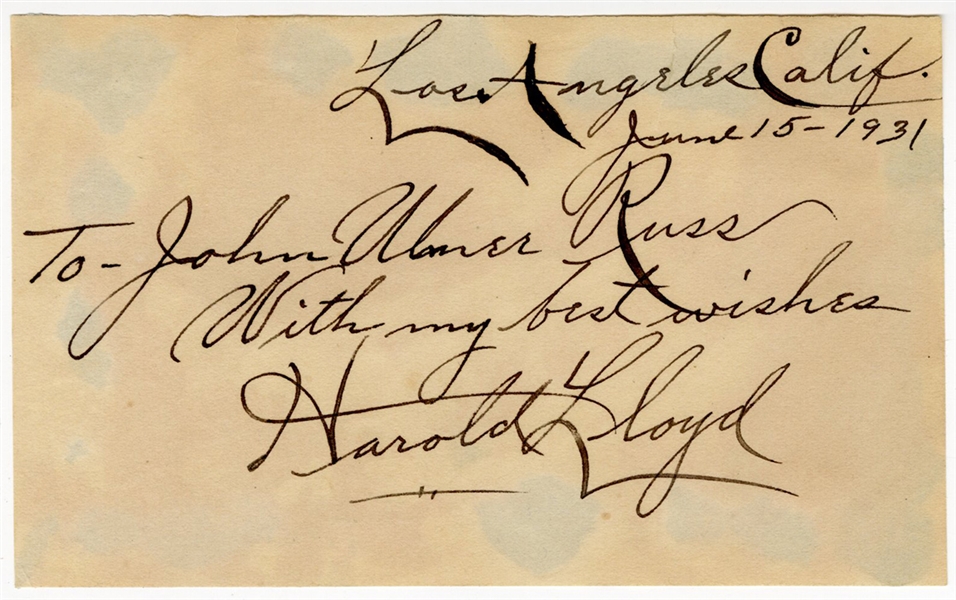 Los Angeles Calif.
June 15-1931
To- John Abner Russ
With my best wishes
Harold Lloyd